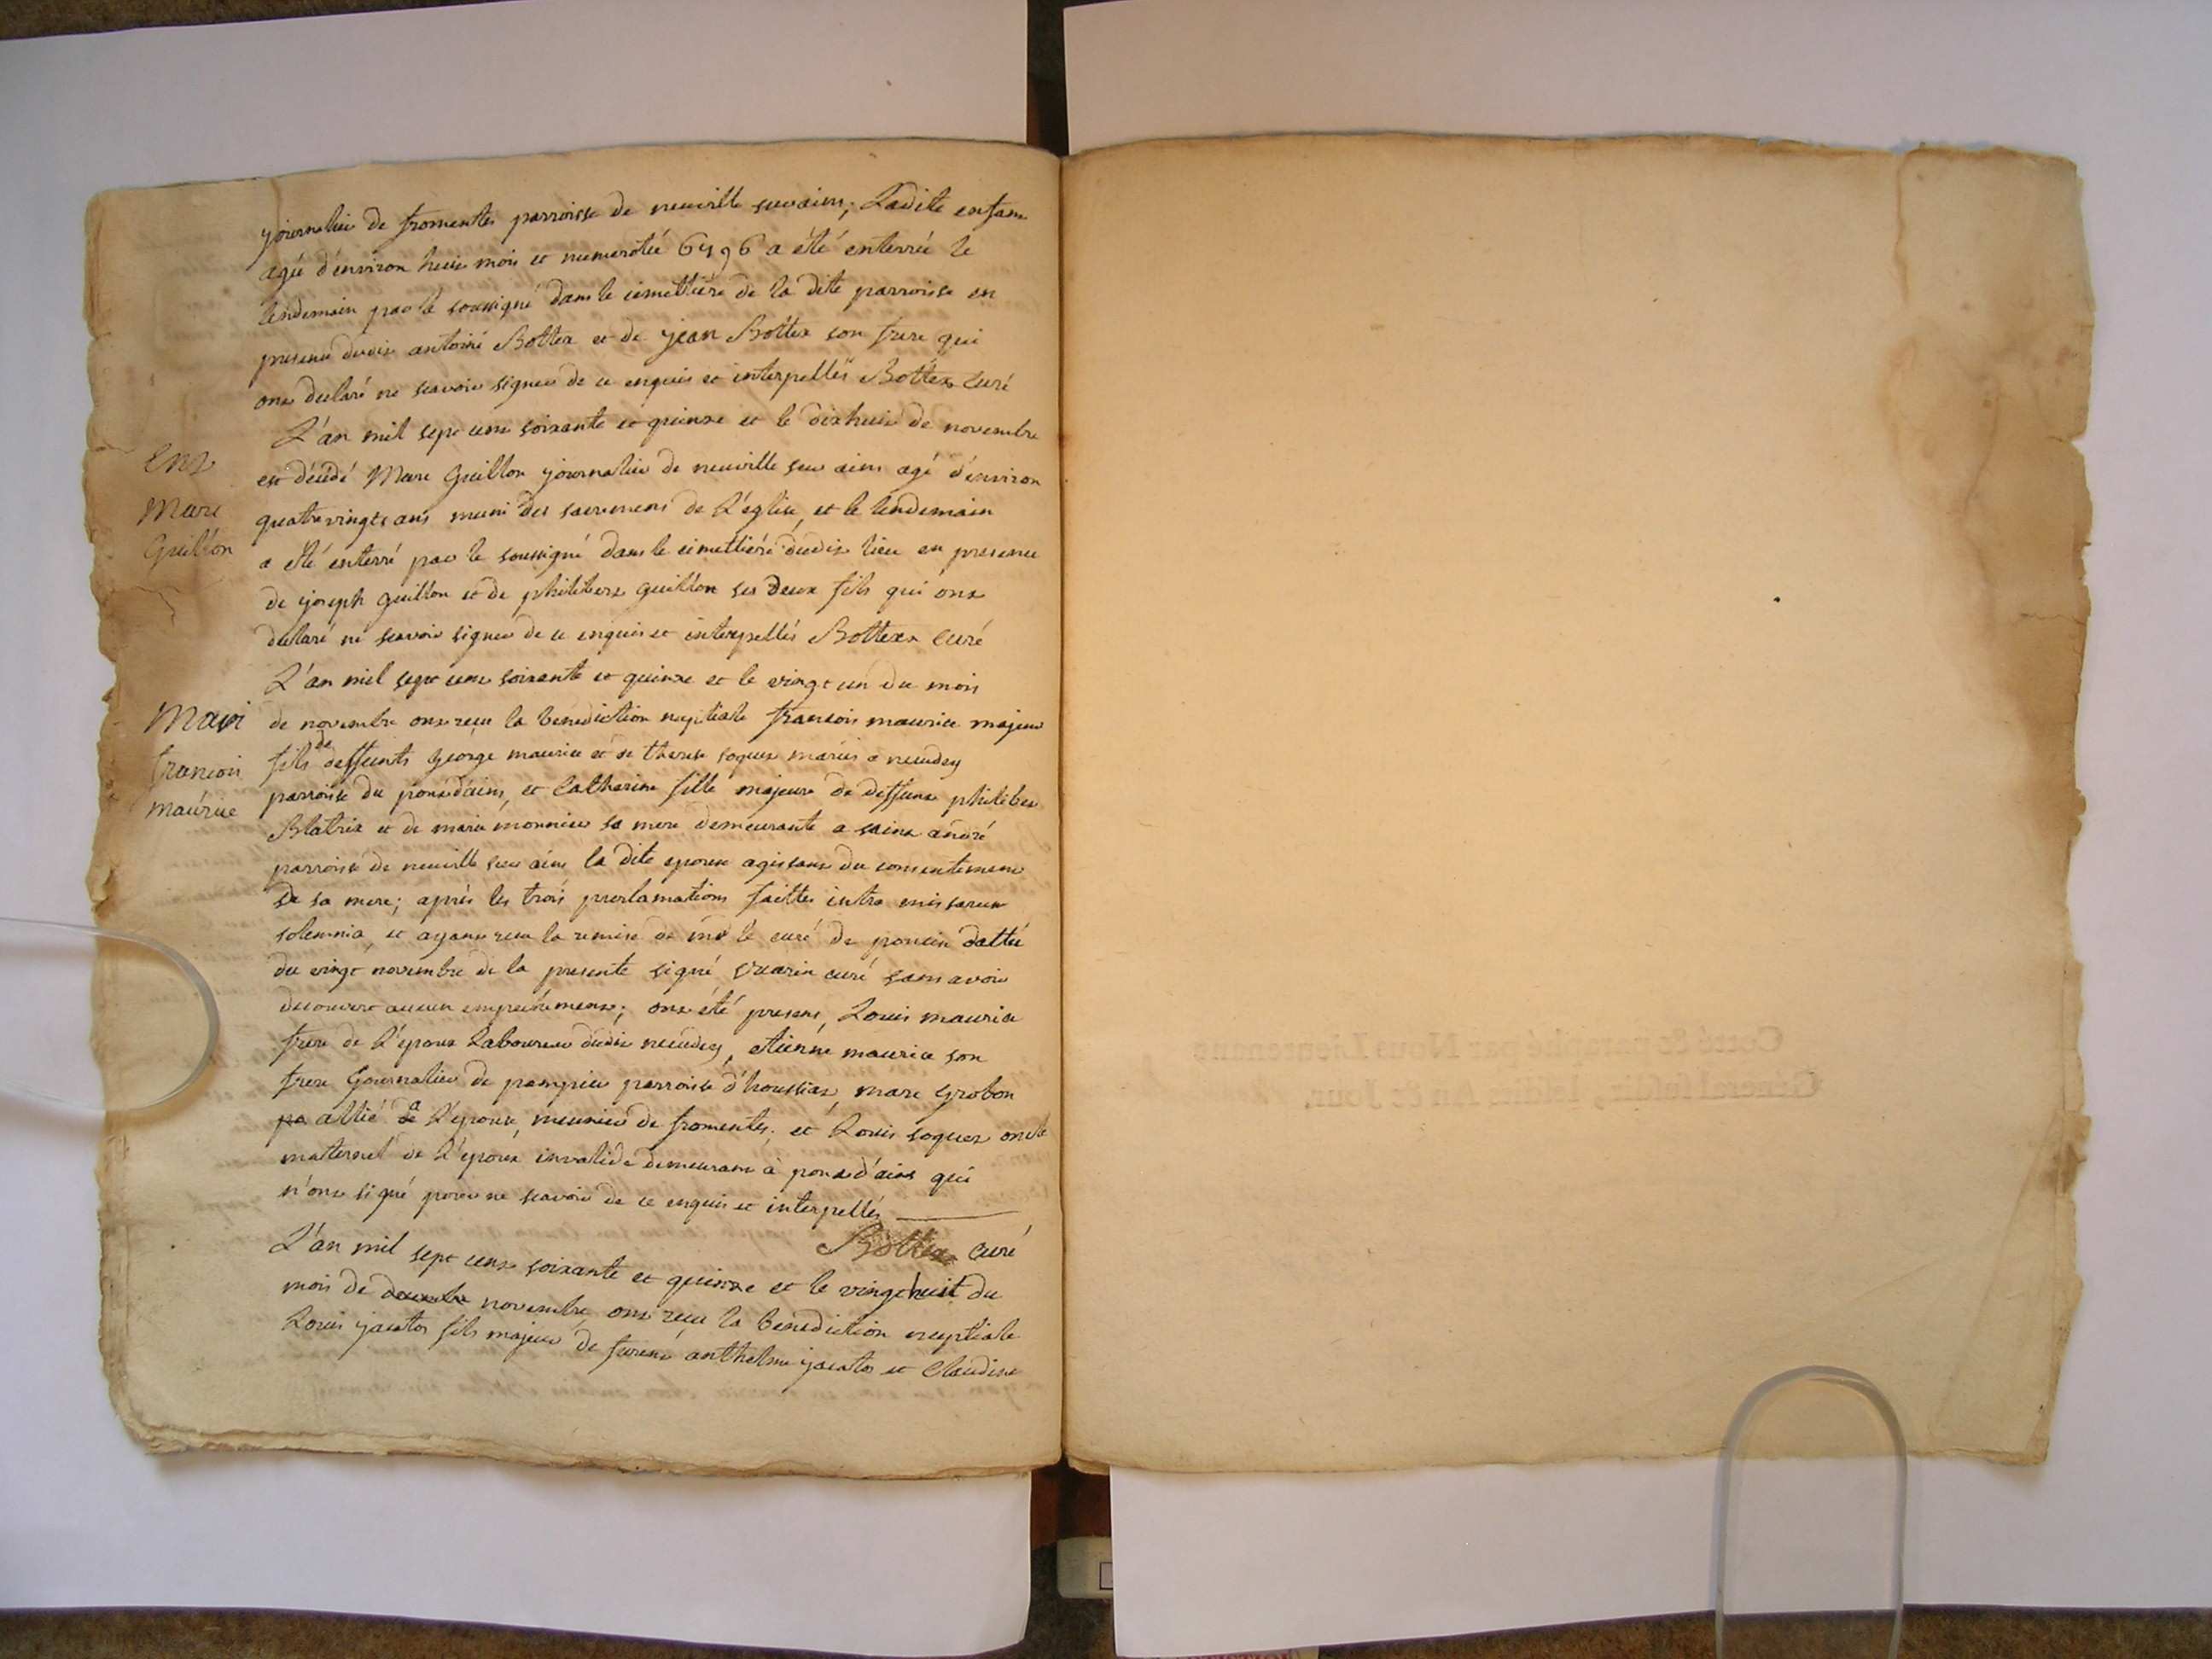 journalier de fromentes parroisse de neuville sur ains; Ladite enfant
agée d'environ huit mois et numerotée 6496 a été enterrée le
lendemain par le soussigné dans le cimettiere de la dite parroisse en
presence dudit antoine Bottex et de jean Bottex son frere qui
ont declaré ne scavoir signer de ce enquis et interpellés Bottex curé
L'an mil sept cent soixante et quinze et le dixhuit de novembre
Ent
est décédé Marc Guillon journalier de neuville sur ains agé d'environ
Marc
quatrevingts ans muni des sacremens de L'église, et le lendemain
Guillon
a été enterré par le soussigné dans le cimettiére dudit lieu en presence
de joseph guillon et de philibert guillon ses deux fils qui ont
declaré ne scavoir signer de ce enquis et interpellés Bottex curé
L'an mil sept cent soixante et quinze et le vingt un du mois
Mari
de novembre ont reçu la benediction nuptiale francois maurice majeur
francois
fils de deffunts george maurice et de therese soquet mariés a neudey
maurice
parroisse du pont d'ains, et Catherine fille majeure de deffunt philibert
Blatrix et de marie monnier sa mere demeurante a saint andré
parroisse de neuville sur ains la dite epouse agissant du consentement
de sa mere; après les trois proclamations faittes intra missarum
solemnia, et ayant reçu la remise de mr le curé de poncin dattée
du vingt novembre de la presente signé curé sans avoir
decouvert aucun empechement; ont été presens, Louis maurice
frere de L'epoux Laboureur dudit neudey, etienne maurice son
frere journalier de pampier parroisse d'houssiat, marc grobon
allié de L'epouse, meunier de fromentes; et Louis soquet oncle
maternel de L'epoux invalide demeurant à pont d'ains qui
n'ont signé pour ne scavoir de ce enquis et interpellés
Bottex curé
L'an mil sept cent soixante et quinze et le vingt huit du
mois de decembre novembre ont reçu la benediction nuptiale
Louis jacatos fils majeur de furent anthelme jacatos et Claudine
Cotté & paraphé par Nous Lieutenant
Général susdit, lesdits An & Jour.